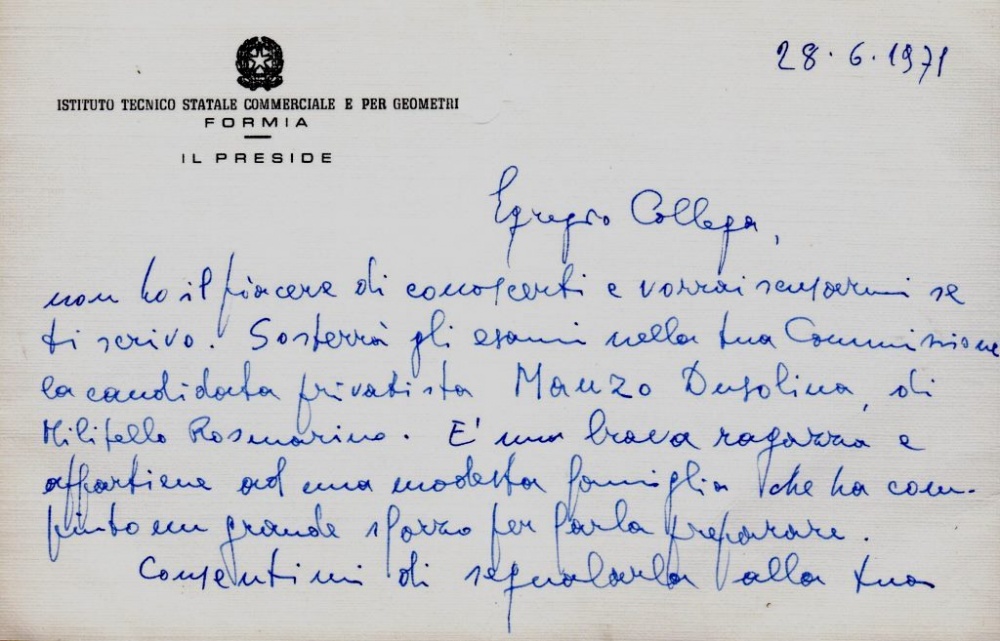 28.6.1971
ISTITUTO TECNICO STATALE COMMERCIALE E PER GEOMETRI
FORMIA
IL PRESIDE
Egregio Collega,
non ho il piacere di conoscerti e vorrai scusarmi se
ti scrivo. Sosterrà gli esami nella tua Commissione
la candidata privatista Manzo Dusolina, di
Militello Rosmarino. E' una brava ragazza e
appartiene ad una modesta famiglia che ha com-
piuto un grande sforzo per farla preparare.
Consentimi di segnalarla alla tua